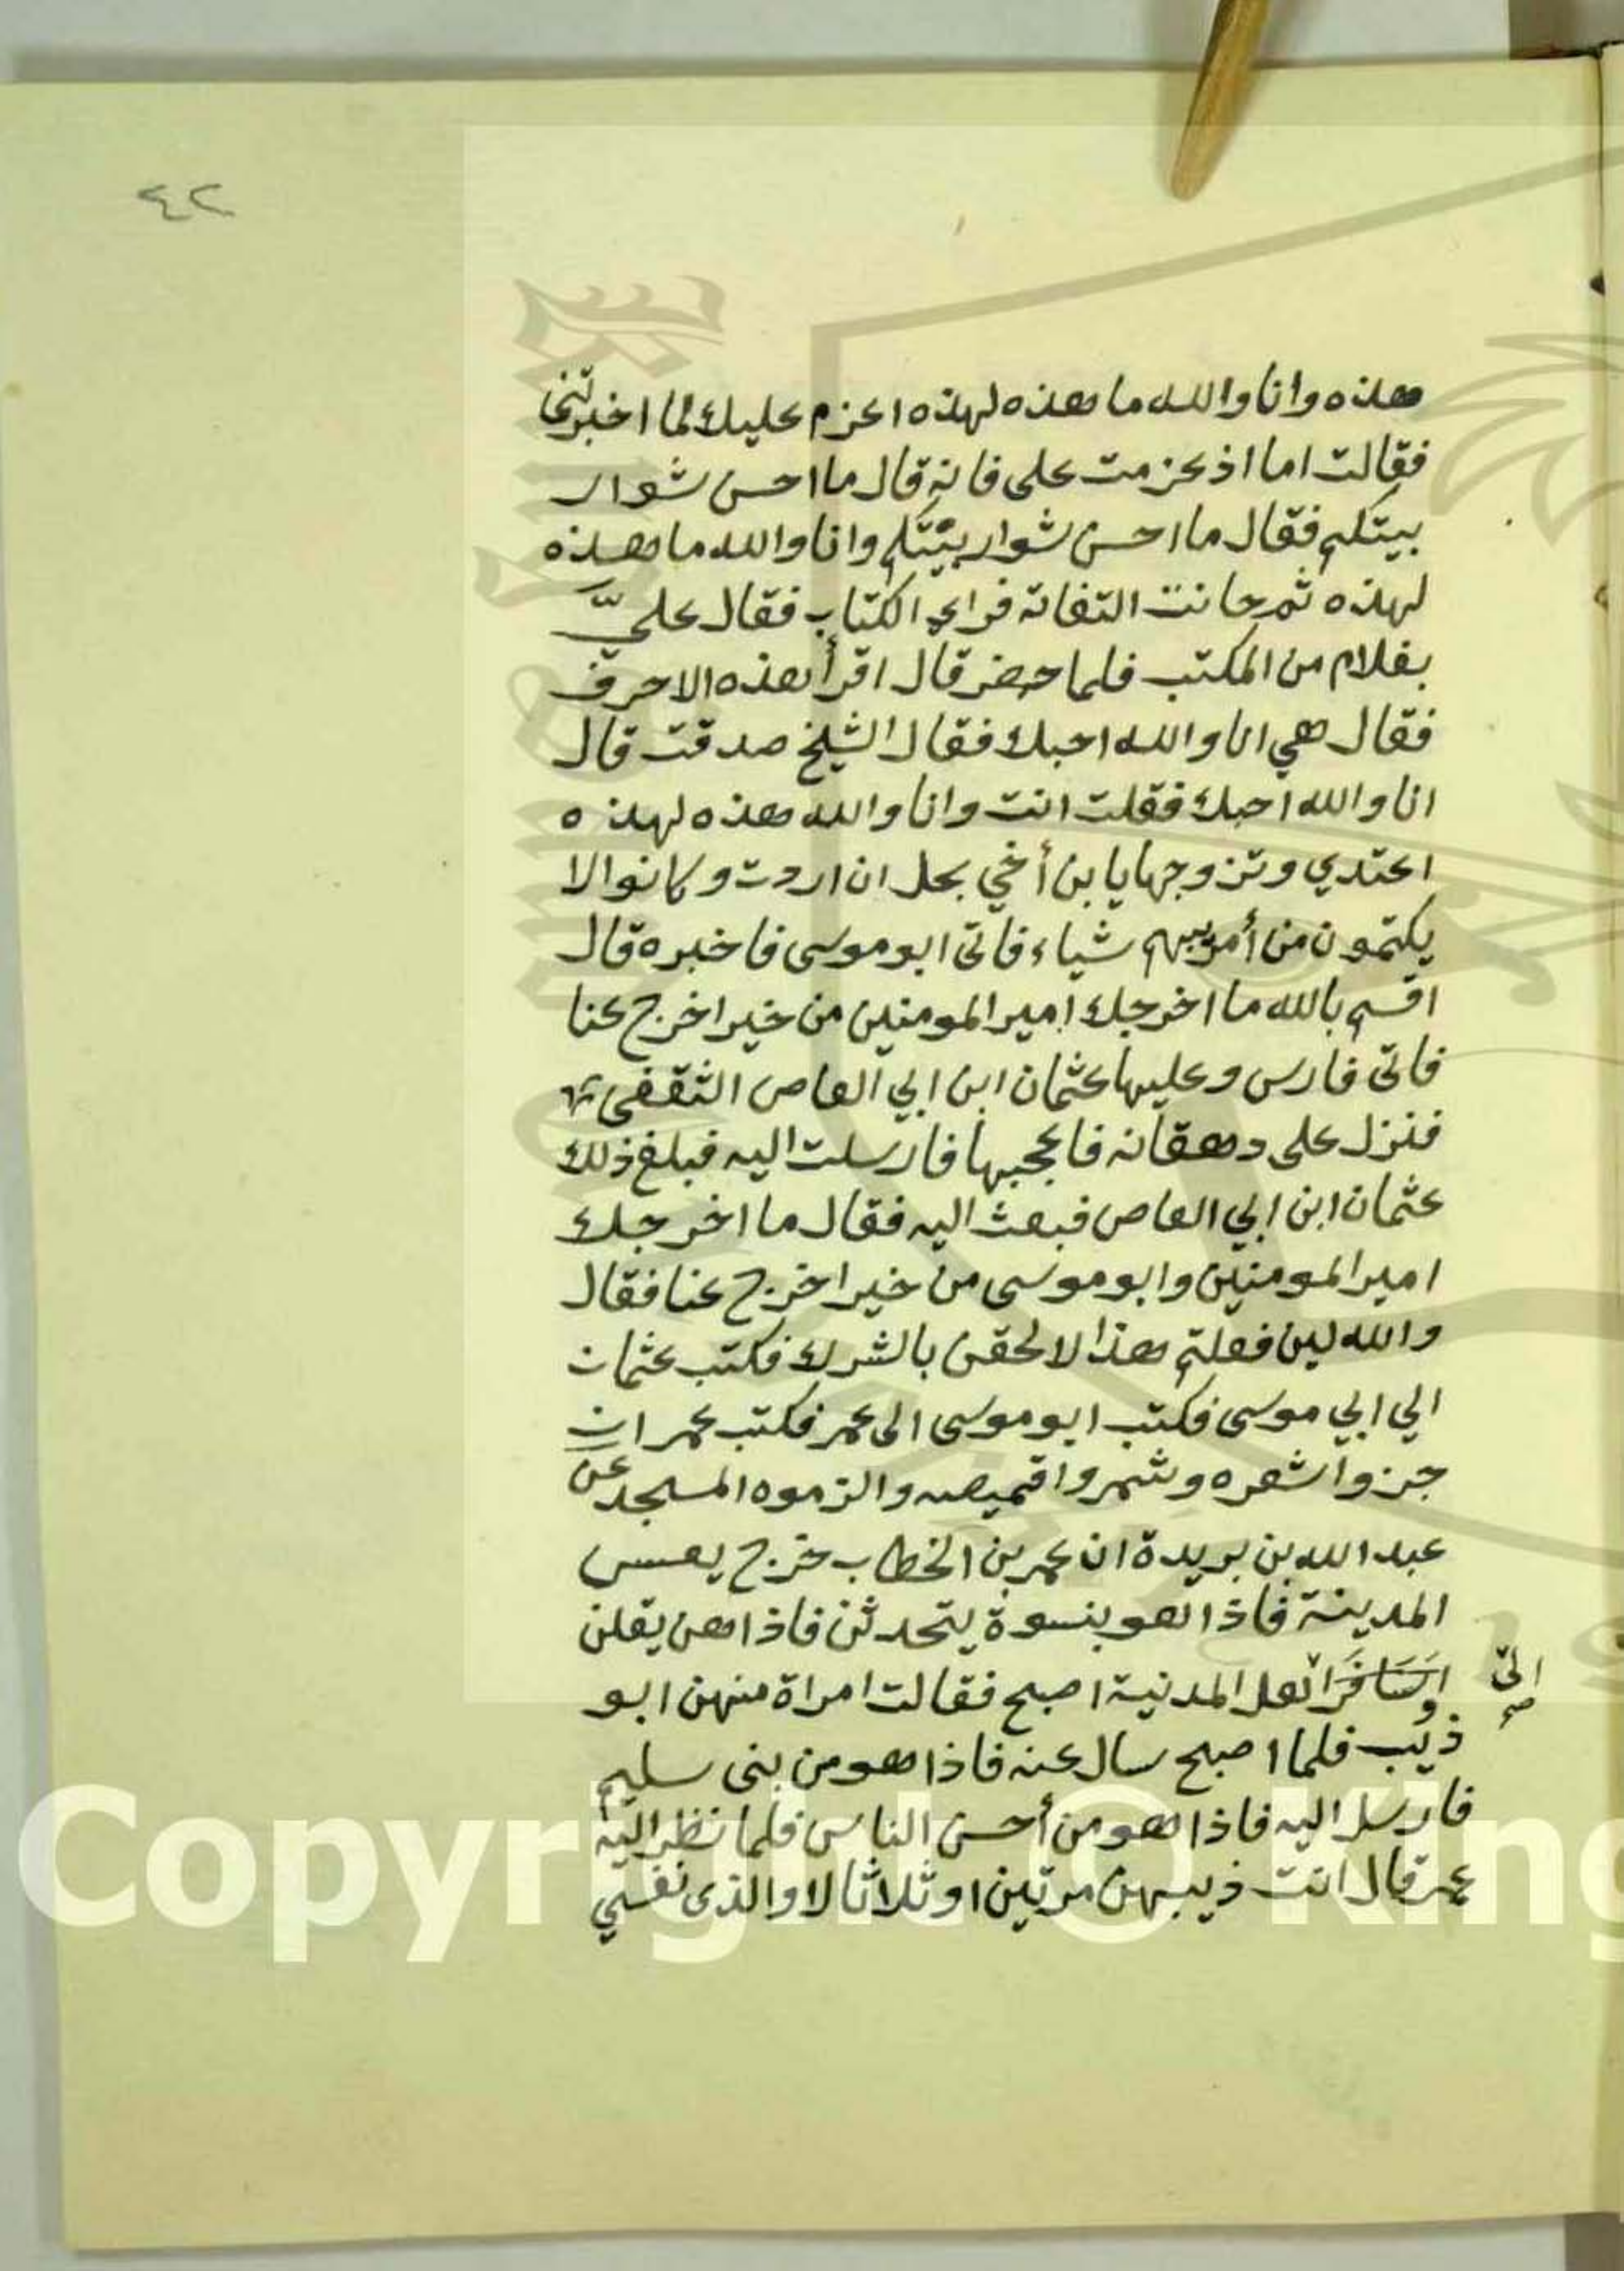 ٤٢
هذه وانا والله ما هذه لهذه اعزم عليك لما اخبرتني
فقالت اما اذ عزمت على فانه قال ما احسن شوار
بيتكم فقال ما احسن شوار بيتكم وانا والله ما هذه
لهذه ثم حانت التفاتة فراى الكتاب فقال عليّ
بغلام من المكتب فلما حضر قال اقرأ هذه الاحرف
فقال هي انا والله احبك فقال الشيخ صدقت قال
انا والله احبك فقلت انت وانا والله هذه لهذه
اعتدي وتزوجها يا بن أخي بحل ان اردت وكانوا لا
يكتمون من أمويهم شياء فاتى ابو موسى فاخبره قال
اقسم بالله ما اخرجك امير المومنين من خير اخرج عنا
فاتى فارس وعليها عثمان ابن ابي العاص الثقفي
فنزل على دهقانه فاعجبها فارسلت اليه فبلغ ذلك
عثمان ابن ابي العاص فبعث اليه فقال ما اخرجك
امير المومنين وابو موسى من خير اخرج عنا فقال
والله لين فعلتم هذا لالحقن بالشرك فكتب عثمان
الي ابي موسى فكتب ابو موسى الى عمر فكتب عمر ان
جزوا شعره وشمروا قميصه والزموه المسجد عن
عبد الله بن بريدة ان عمر بن الخطاب خرج يعسس
المدينة فاذا هو بنسوة يتحدثن فاذا هن يقلن
اهل المدنية اصبح فقالت امراة منهن ابو
اىّ
صح
ذيب فلما اصبح سال عنه فاذا هو من بنى سليم
فارسل اليه فاذا هو من أحسن الناس فلما نظر اليه
عمر قال انت ذيبهن مرتين او ثلاثا لا والذى نفسي
Copyright © King